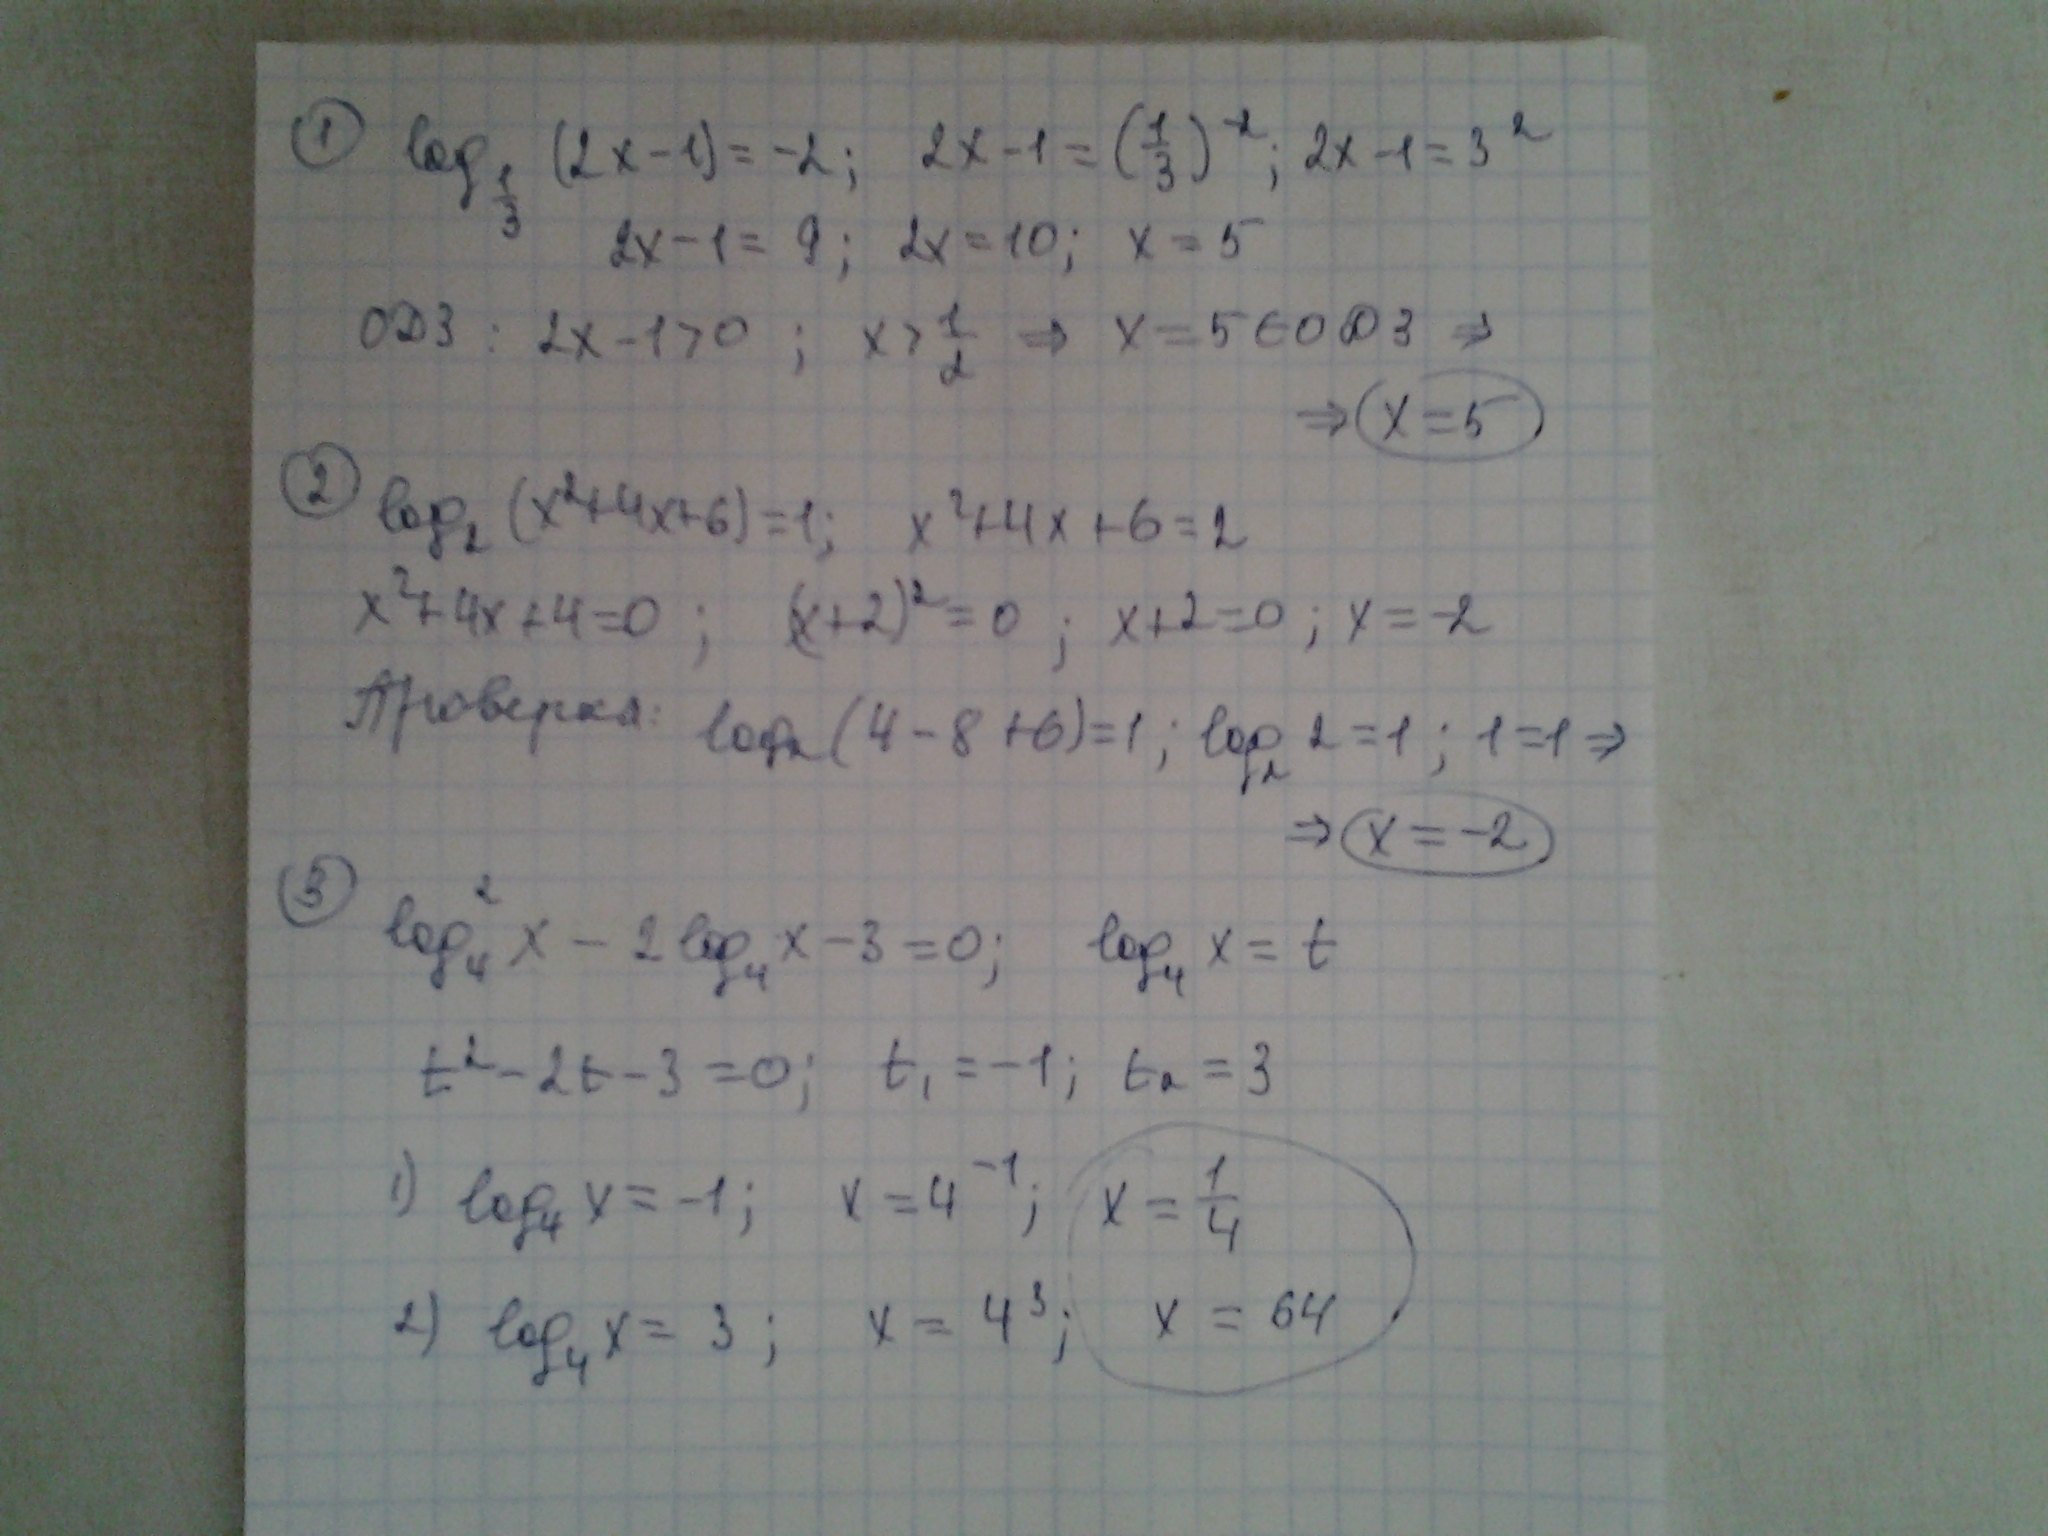 ① log_{1/3} (2x-1) = -2; 2x-1 = (1/3)^{-2}; 2x-1 = 3^2
2x-1 = 9; 2x = 10; x = 5
ОДЗ: 2x-1>0; x > 1/2 ⇒ x = 5 ∈ ОДЗ ⇒
⇒ x = 5
② log_2 (x^2+4x+6) = 1; x^2+4x+6 = 2
x^2+4x+4=0; (x+2)^2 = 0; x+2=0; x = -2
Проверка: log_2 (4-8+6)=1; log_2 2 = 1; 1=1 ⇒
⇒ x = -2
③ log_4^2 x - 2 log_4 x - 3 = 0; log_4 x = t
t^2 - 2t - 3 = 0; t_1 = -1; t_2 = 3
1) log_4 x = -1; x = 4^{-1}; x = 1/4
2) log_4 x = 3; x = 4^3; x = 64